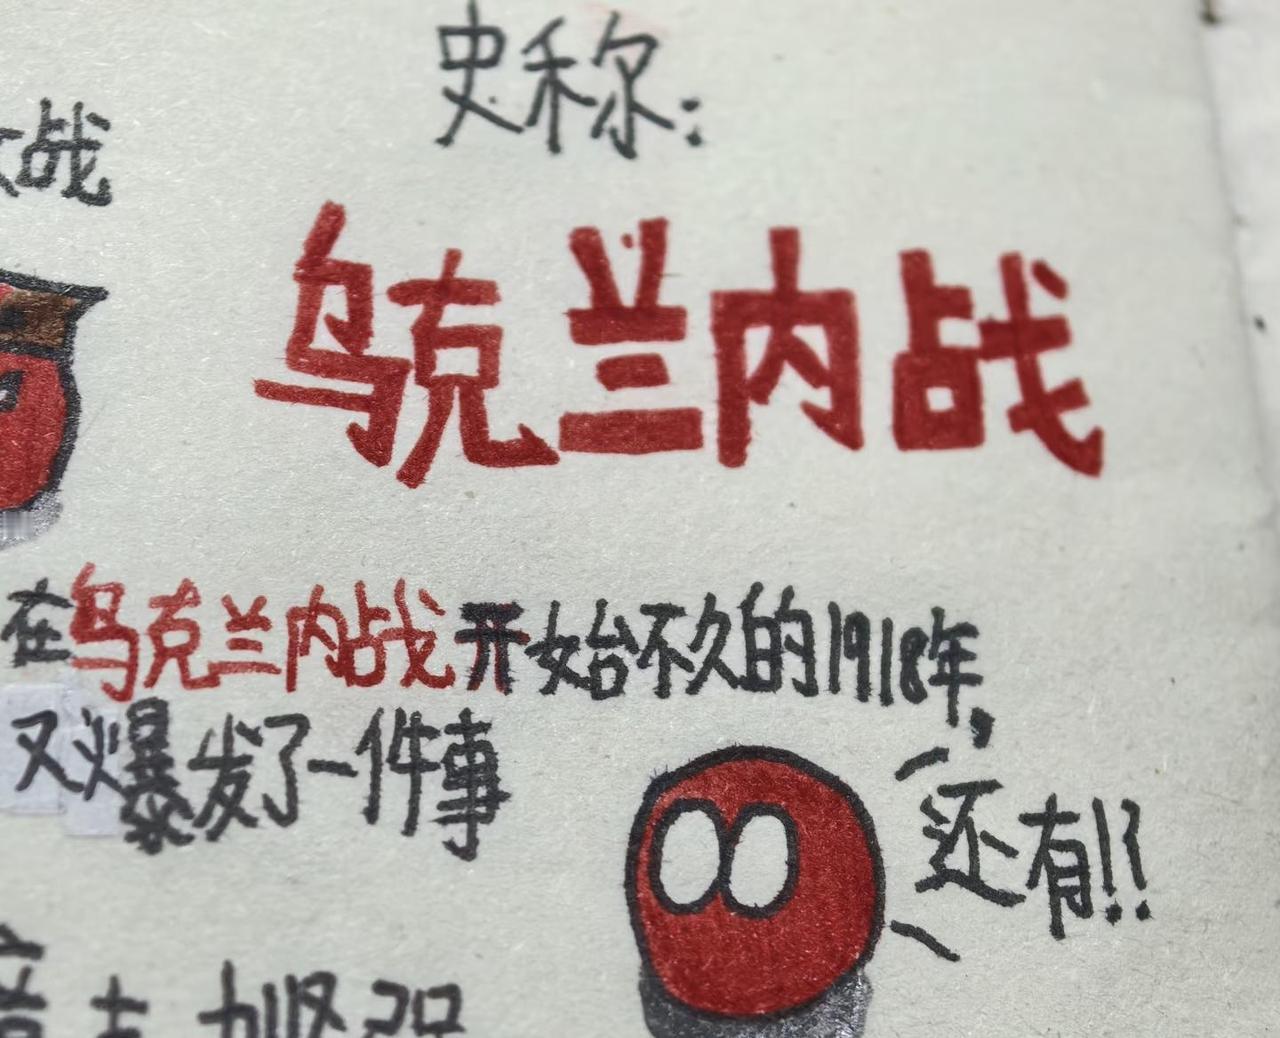 史称:
战
乌克兰内战
在乌克兰内战开始不久的1918年,
又爆发了一件事
还有!?